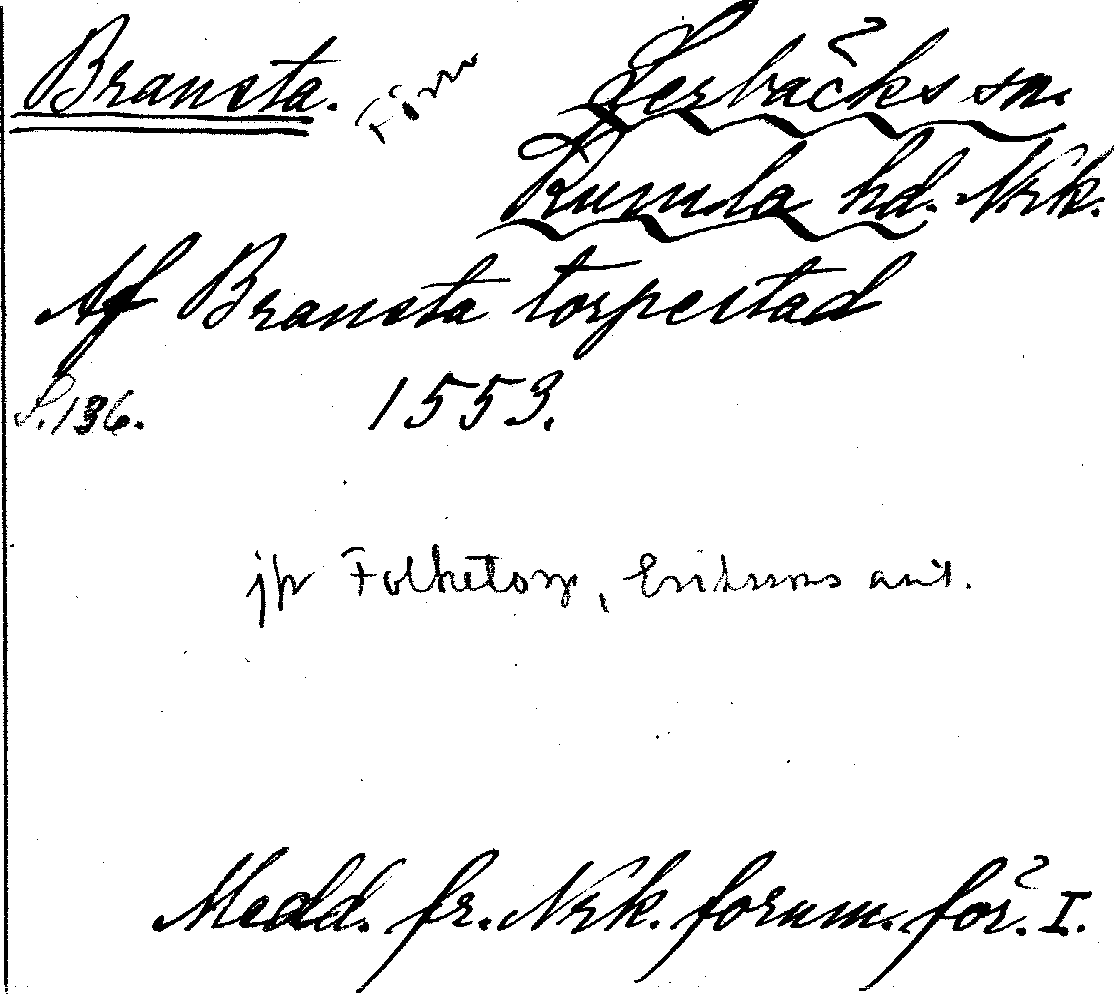 Bransta. Förn Lerbäcks sn.
Kumla hd. Nrk.
Af Bransta torpestad
S. 136. 1553.
jfr Folketorp, Erikssons ant.
Medd. fr. Nrk. fornm. för. I.